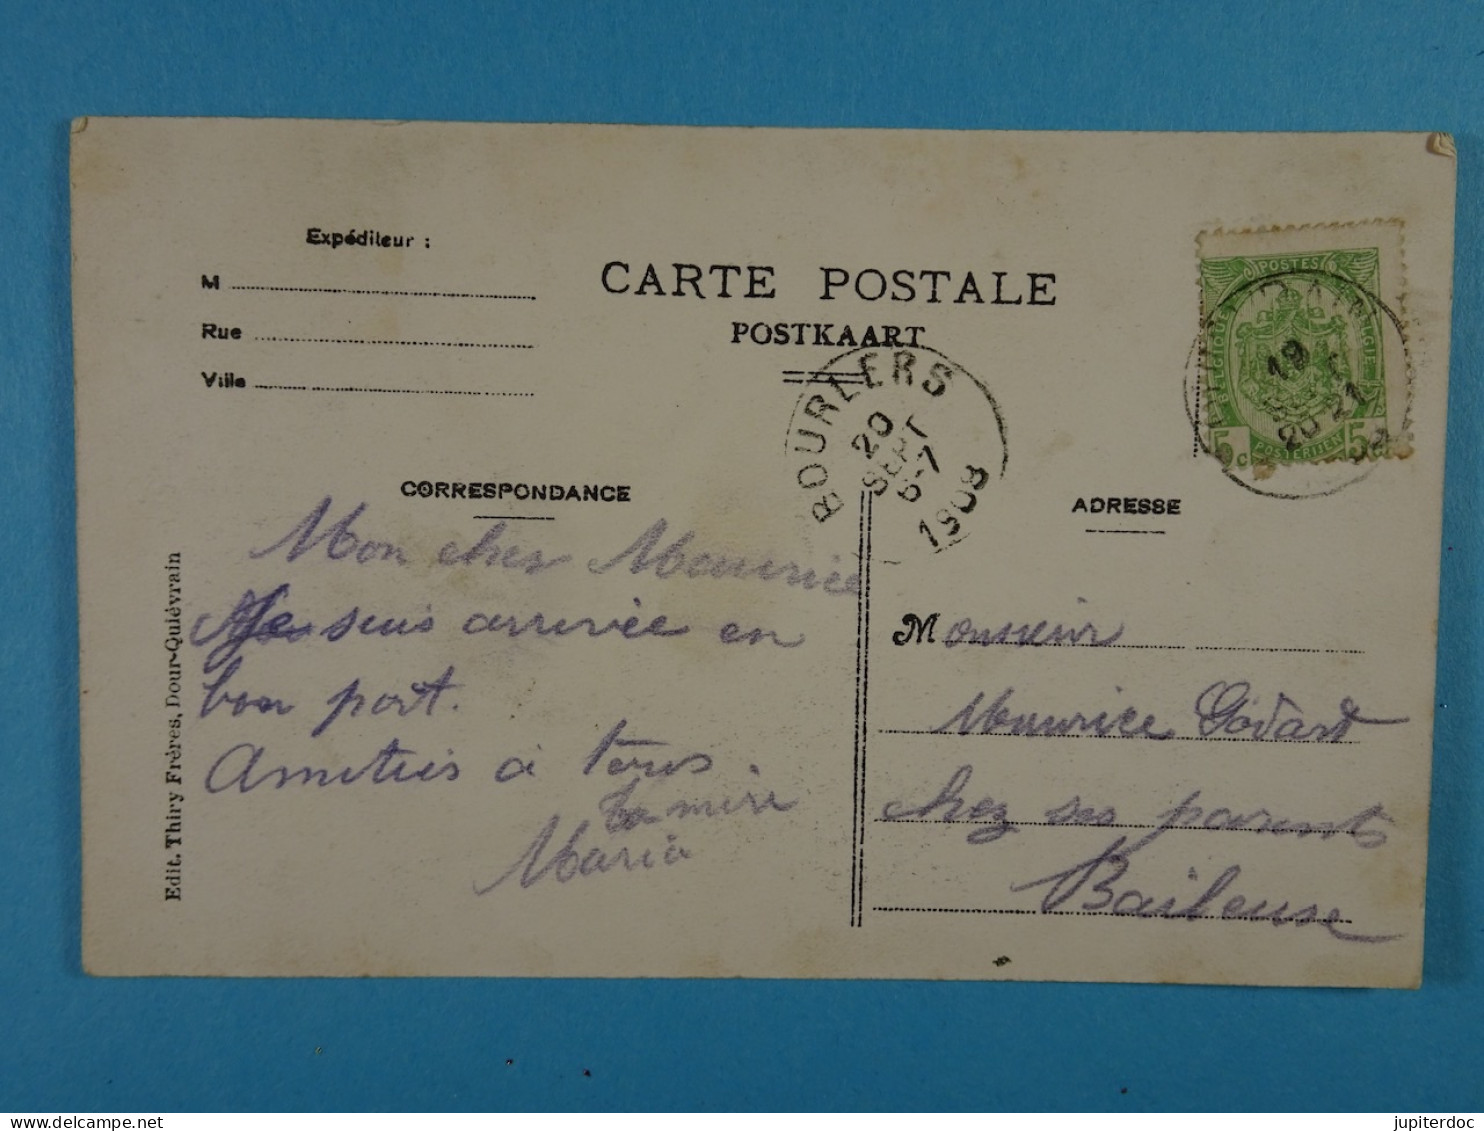 Expéditeur :
M
Rue
Ville
CARTE POSTALE
POSTKAART
POSTES
BELGIQUE BELGIE
POSTERIJEN
5 c 5 c
19
20-21
BOURLERS
20
SEPT
6-7
1908
CORRESPONDANCE
ADRESSE
Mon cher Maurice
Je suis arrivée en
bon port.
Amitiés à tous.
Ta mère
Maria
Monsieur
Maurice Godart
chez ses parents
Baileuse
Edit. Thiry Frères, Dour-Quiévrain
jupiterdoc